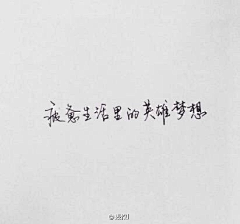 疲惫生活里的英雄梦想